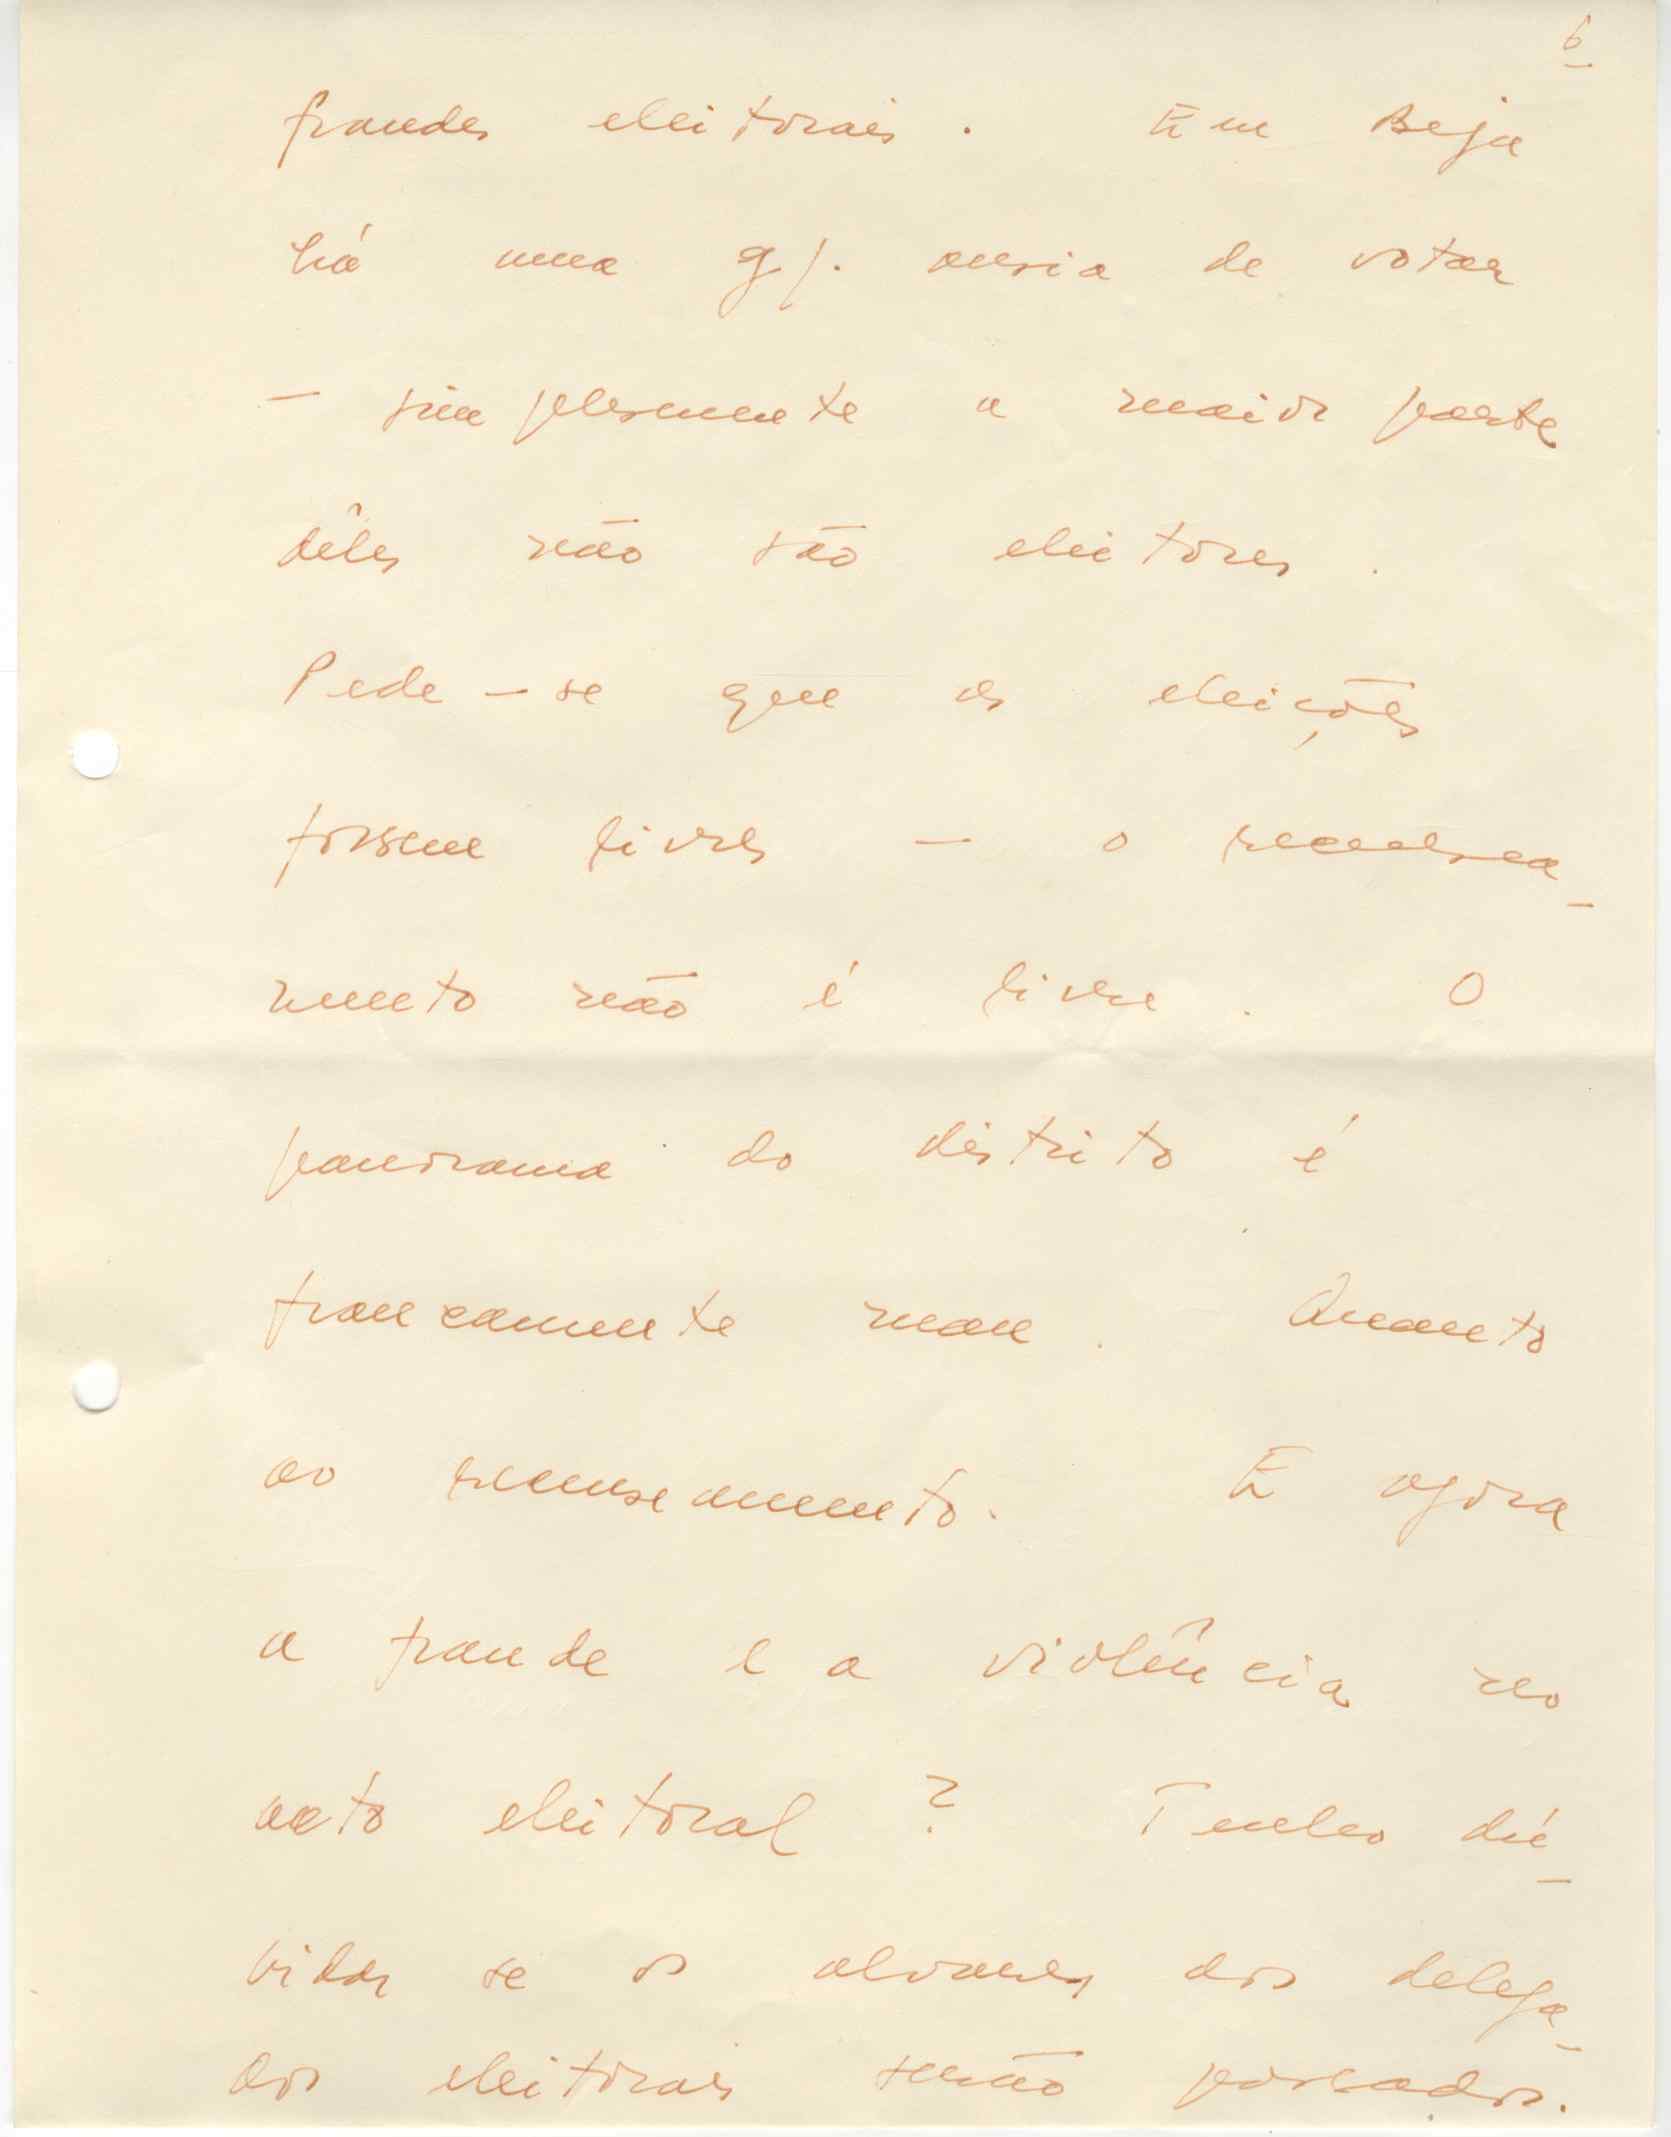 6
fraudes eleitorais. Em Beja
há uma g/. ansia de votar
— simplesmente a maior parte
dêles não são eleitores.
Pede-se que as eleições
fossem livres — o recensea-
mento não é livre. O
panorama do distrito é
francamente mau. Quanto
ao recenseamento. E agora
a fraude e a violência no
acto eleitoral? Tenho dú-
vidas se os alvarás dos delega-
dos eleitorais serão passados.